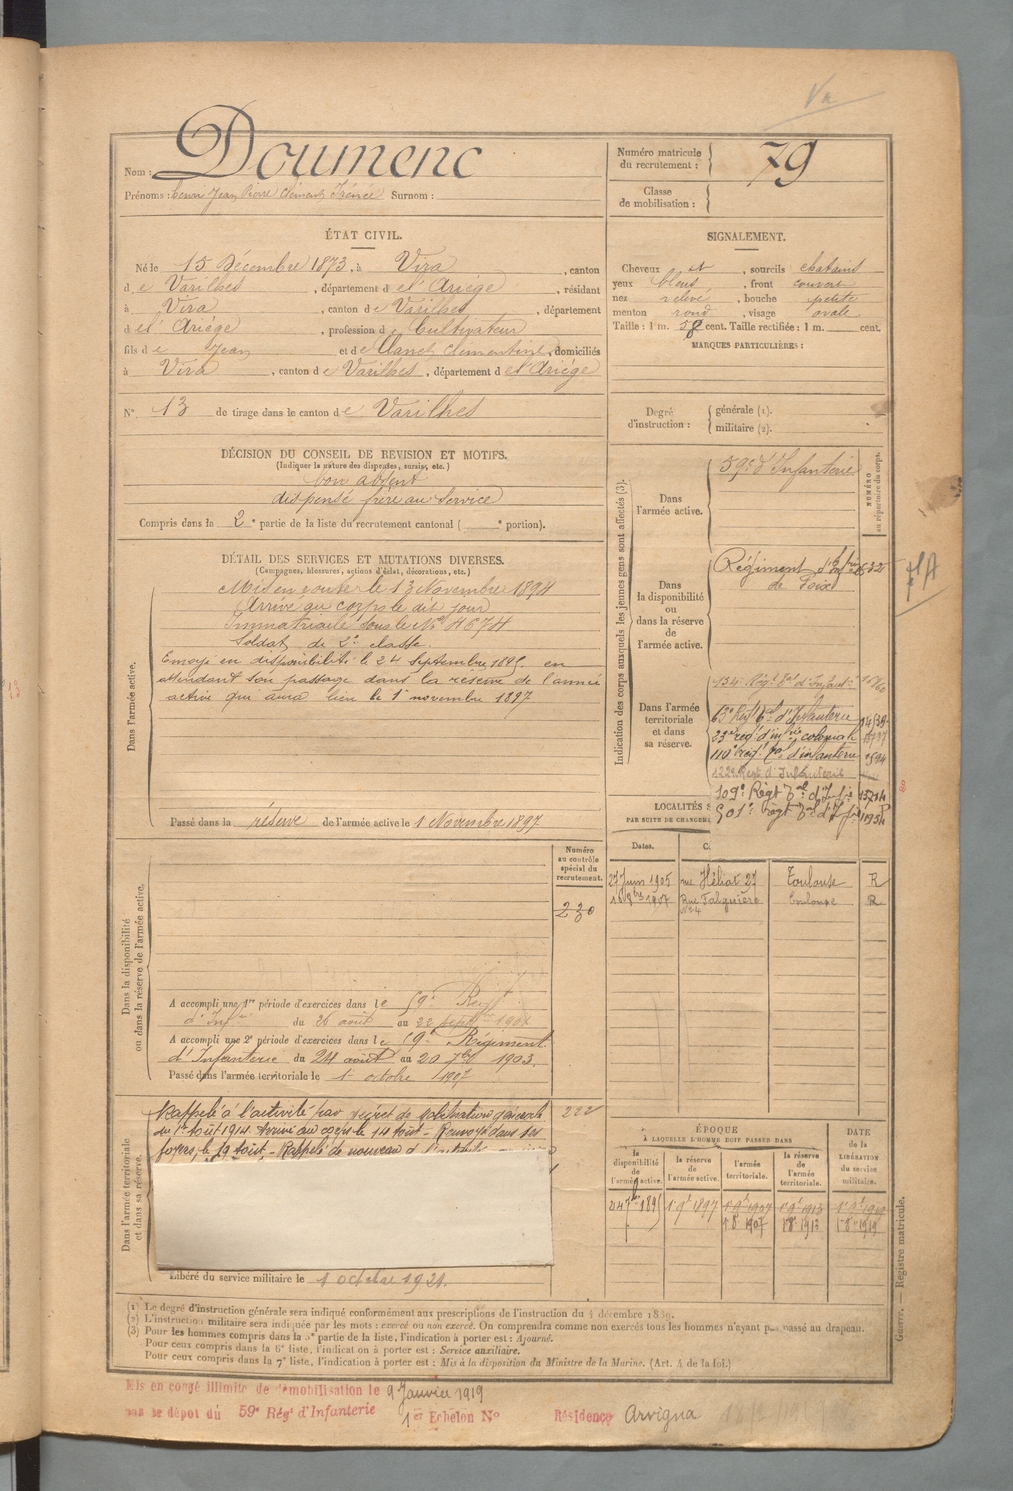 Nom : Doumenc
Prénoms : Henri Jean Pierre Clément Irénée Surnom :
Numéro matricule du recrutement : 79
Classe de mobilisation :
ÉTAT CIVIL.
Né le 15 Décembre 1873, à Vira, canton
de Varilhes, département de l'Ariège, résidant
à Vira, canton de Varilhes, département
de l'Ariège, profession de Cultivateur
fils de Jean et de Clanet Clémentine, domiciliés
à Vira, canton de Varilhes, département de l'Ariège
N° 13 de tirage dans le canton de Varilhes
SIGNALEMENT.
Cheveux et, sourcils chatains
yeux bleus, front couvert
nez relevé, bouche petite
menton rond, visage ovale
Taille : 1 m. 58 cent. Taille rectifiée : 1 m. cent.
MARQUES PARTICULIÈRES :
Degré d'instruction : générale (1). militaire (2).
DÉCISION DU CONSEIL DE REVISION ET MOTIFS.
(Indiquer la nature des dispenses, sursis, etc.)
bon absent
dispensé frère au service
Compris dans la 2e partie de la liste du recrutement cantonal ( e portion).
DÉTAIL DES SERVICES ET MUTATIONS DIVERSES.
(Campagnes, blessures, actions d'éclat, décorations, etc.)
Dans l'armée active.
Mis en route le 13 Novembre 1894
Arrivé au corps le dit jour
Immatriculé sous le N° 4674
Soldat de 2e classe.
Envoyé en disponibilité le 24 Septembre 1895. en
attendant son passage dans la réserve de l'armée
active qui aura lieu le 1er novembre 1897
Passé dans la réserve de l'armée active le 1 Novembre 1897
Indication des corps auxquels les jeunes gens sont affectés (3).
NUMÉRO au répertoire du corps.
Dans l'armée active.
59e d'Infanterie
Dans la disponibilité ou dans la réserve de l'armée active.
Régiment d'Infrie
de Foix
Dans l'armée territoriale et dans sa réserve.
134e Régt tal d'Infant
23e reg. d'infie coloniale
110e reg. tal d'infanterie
122e Regt d'Infanterie
109e Régt tal d'Infie
501e régt tal d'Infie
LOCALITÉS
PAR SUITE DE CHANGEM
Dates.
27 Juin 1905 rue Héliot 27 Toulouse R
1907 Rue Falguière N° 4 Toulouse R
Dans la disponibilité ou dans la réserve de l'armée active.
Numéro au contrôle spécial du recrutement.
230
A accompli une 1re période d'exercices dans le 59e Regt
d'Infie du 26 août au 22 septbre 1901
A accompli une 2e période d'exercices dans le 59e Régiment
d'Infanterie du 24 août au 20 7bre 1903.
Passé dans l'armée territoriale le 1 octobre 1907
Dans l'armée territoriale et dans sa réserve.
Rappelé à l'activité par décret de mobilisation générale 222
du 1er Août 1914. Arrivé au corps le 14 Août - Renvoyé dans ses
foyers, le 19 Août. - Rappelé de nouveau
Libéré du service militaire le 1 octobre 1921.
ÉPOQUE
À LAQUELLE L'HOMME DOIT PASSER DANS
la disponibilité de l'armée active.
la réserve de l'armée active.
l'armée territoriale.
la réserve de l'armée territoriale.
DATE de la LIBÉRATION du service militaire.
24 7bre 1895 1er 9bre 1897 1er 9bre 1907 1er 9bre 1913 1er 9bre 1919
1er 8bre 1907 1er 8bre 1913 1er 8bre 1919
(1) Le degré d'instruction générale sera indiqué conformément aux prescriptions de l'instruction du 4 décembre 1889.
(2) L'instruction militaire sera indiquée par les mots : exercé ou non exercé. On comprendra comme non exercés tous les hommes n'ayant pas passé au drapeau.
(3) Pour les hommes compris dans la 5e partie de la liste, l'indication à porter est : Ajourné.
Pour ceux compris dans la 6e liste, l'indication à porter est : Service auxiliaire.
Pour ceux compris dans la 7e liste, l'indication à porter est : Mis à la disposition du Ministre de la Marine. (Art. 4 de la loi.)
Guerre. — Registre matricule.
Mis en congé illimité de démobilisation le 9 Janvier 1919
par le dépot du 59e Rég d'Infanterie 1er Echelon N° Résidence Arvigna